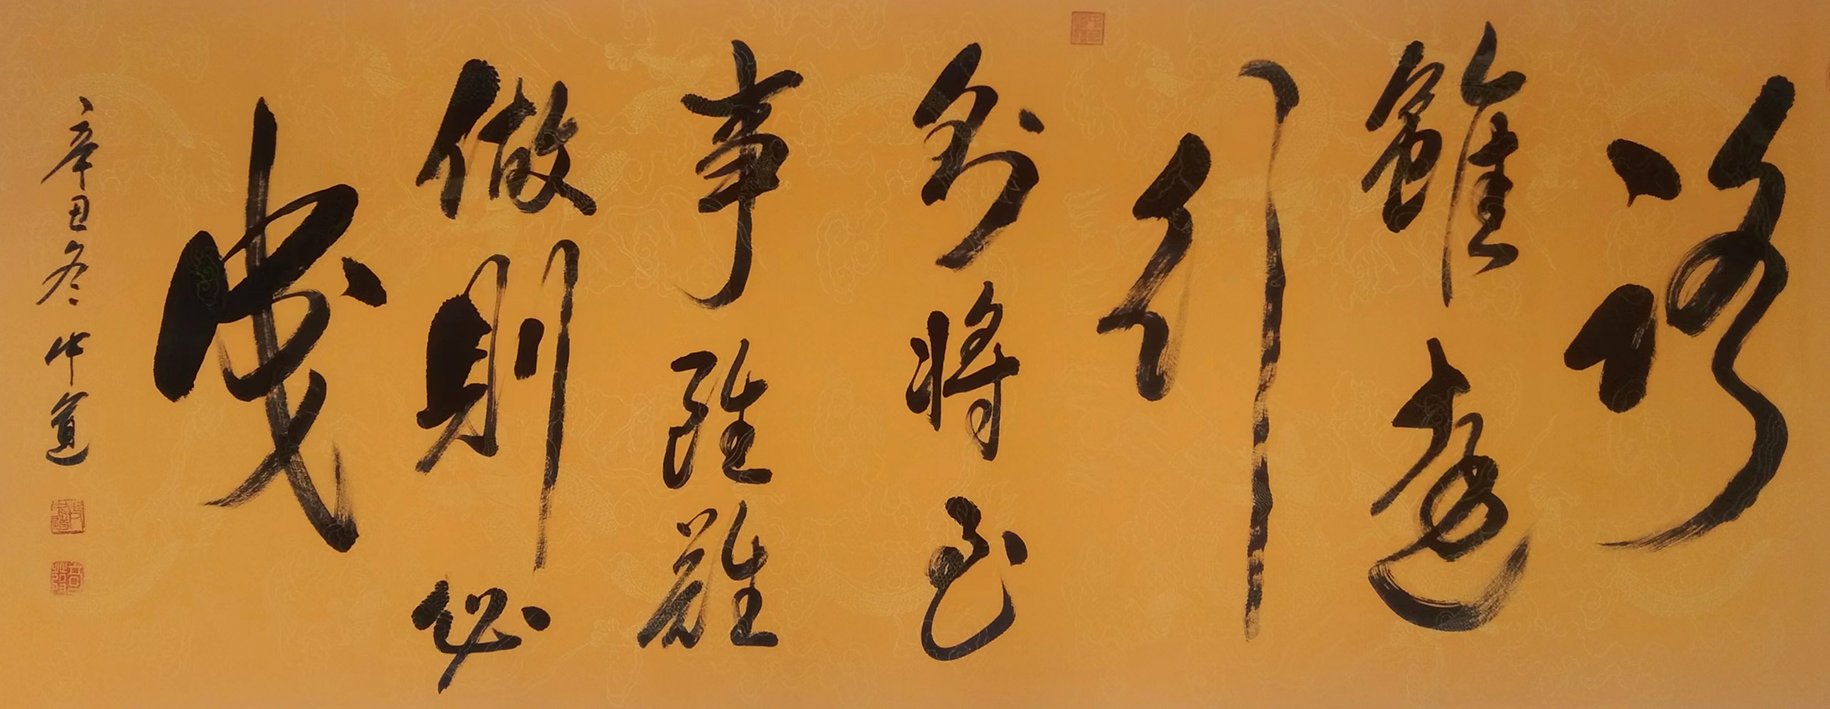 路
雖遠
行
則將至
事雖難
做則必
成
辛丑冬中道